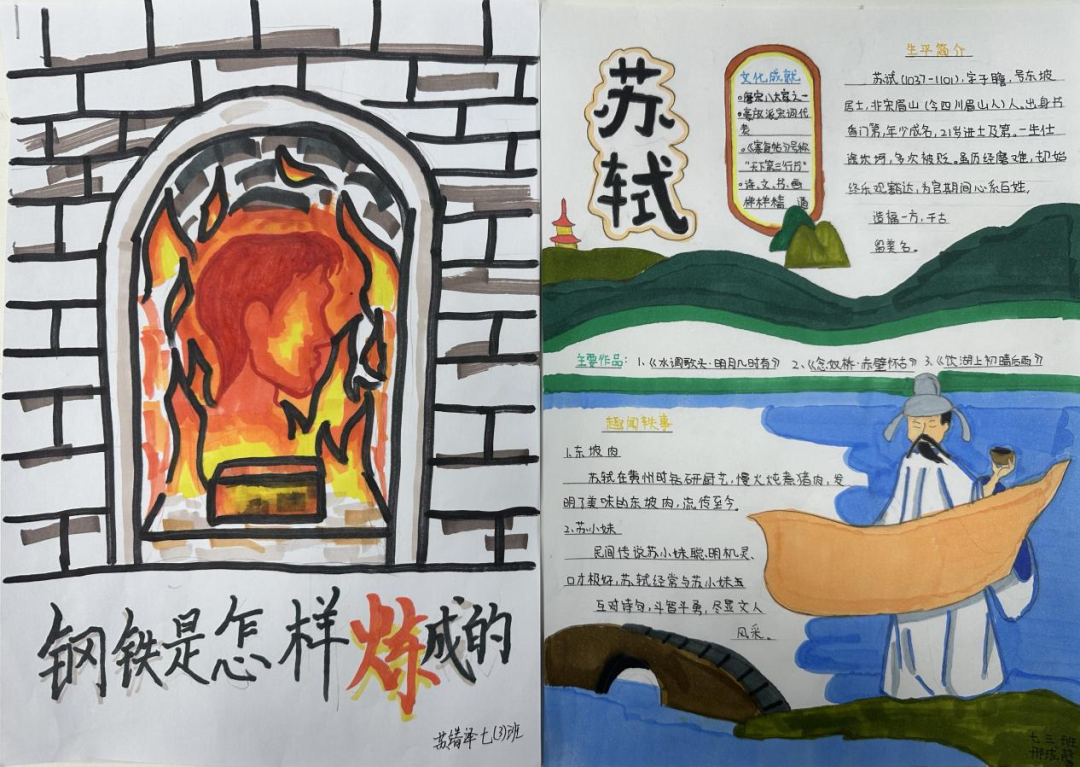 钢铁是怎样炼成的
七(3)班
苏
轼
文化成就
唐宋八大家之一
豪放派宋词代
表
《寒食帖》号称
"天下第三行书"
诗、文、书、画
样样精通
生平简介
苏轼(1037-1101),字子瞻,号东坡
居士,北宋眉山(今四川眉山人)人。出身书
香门第,年少成名,21岁进士及第。一生仕
途坎坷,多次被贬。虽历经磨难,却始
终乐观豁达,为官期间心系百姓,
造福一方,千古
留美名。
主要作品: 1.《水调歌头·明月几时有》 2.《念奴娇·赤壁怀古》 3.《饮湖上初晴后雨》
趣闻轶事
1.东坡肉
苏轼在黄州时钻研厨艺,慢火炖煮猪肉,发
明了美味的东坡肉,流传至今。
2.苏小妹
民间传说苏小妹聪明机灵、
口才极好,苏轼经常与苏小妹互
互对诗句,斗智斗勇,尽显文人
风采。
七三班